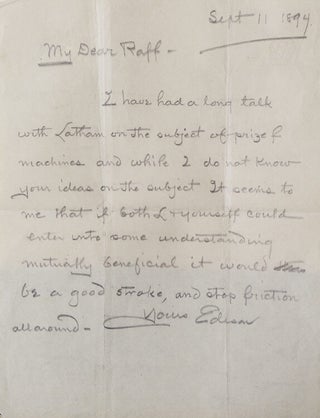 Sept 11 1894.
My Dear Raff -
I have had a long talk
with Latham on the subject of prize f
machines and while I do not know
your ideas on the subject It seems to
me that if both L & yourself could
enter into some understanding
mutually beneficial it would
be a good stroke, and stop friction
all around - Yours Edison